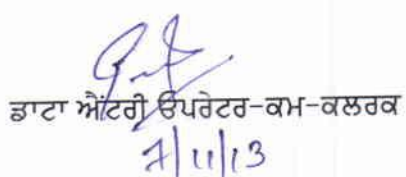 ਡਾਟਾ ਐਂਟਰੀ ਓਪਰੇਟਰ-ਕਮ-ਕਲਰਕ
7/11/13